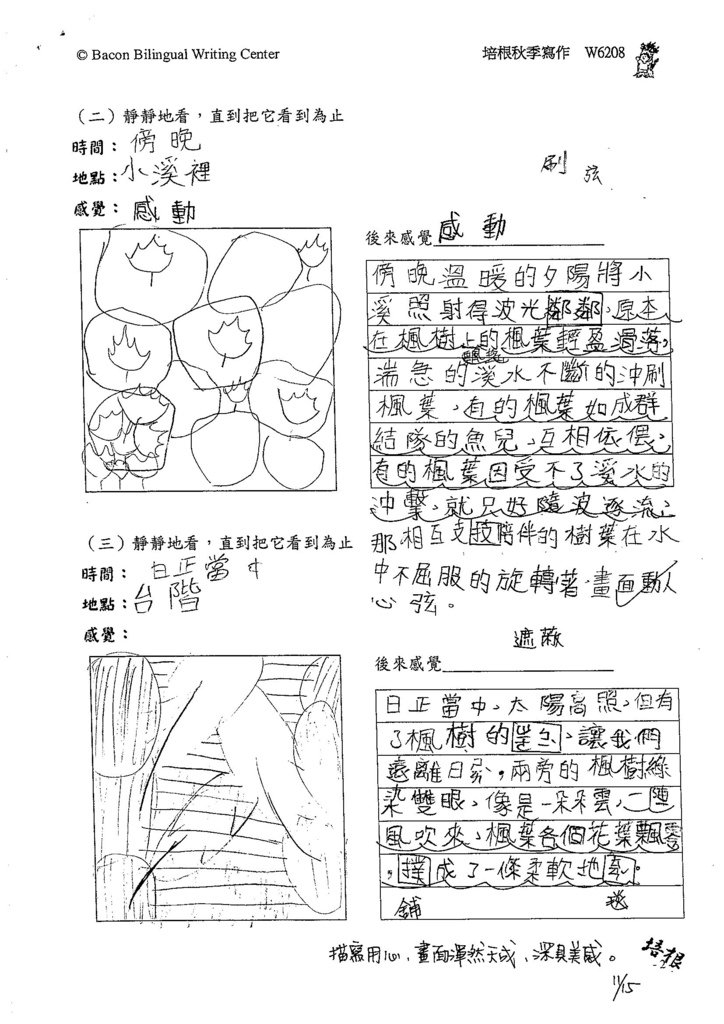 © Bacon Bilingual Writing Center
培根秋季寫作 W6208
（二）靜靜地看，直到把它看到為止
時間：傍晚
地點：小溪裡
感覺：感動
刷 弦
後來感覺 感動
傍晚溫暖的夕陽將小
溪照射得波光鄰鄰，原本
在楓樹上的楓葉輕盈滑落，
湍急的溪水不斷的沖刷
楓葉，有的楓葉如成群
結隊的魚兒，互相依偎，
有的楓葉因受不了溪水的
沖擊，就只好隨波逐流，
那相互支技陪伴的樹葉在水
中不屈服的旋轉著，畫面動人
心弦。
（三）靜靜地看，直到把它看到為止
時間：日正當中
地點：台階
感覺：
遮蔽
後來感覺
日正當中，太陽高照，但有
了楓樹的，讓我們
遠離日，兩旁的楓樹綠
染雙眼，像是一朵朵雲，一陣
風吹來，楓葉各個花葉飄零
，撲成了一條柔軟地。
舖 毯
描寫用心，畫面渾然天成，深具美感。
培根
11/15